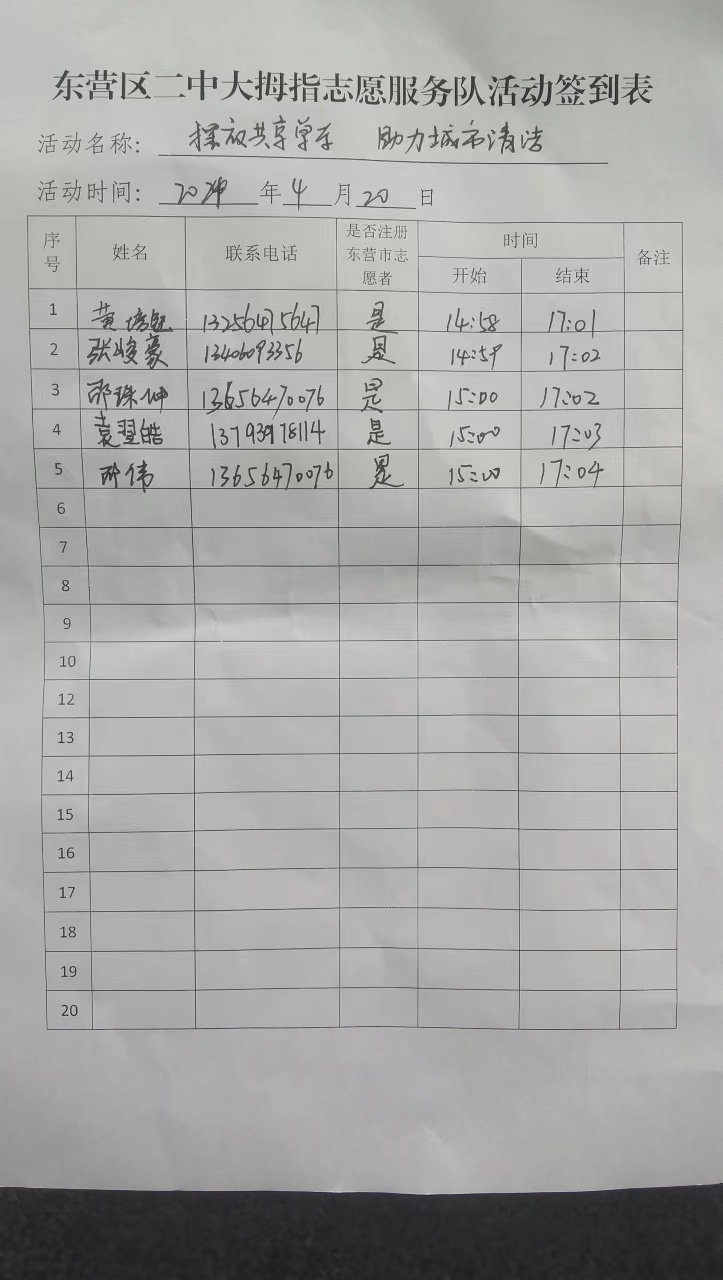 东营区二中大拇指志愿服务队活动签到表
活动名称: 摆放共享单车 助力城市清洁
活动时间: 2024 年 4 月 20 日
序号 姓名 联系电话 是否注册东营市志愿者 时间 备注
开始 结束
1 黄 13256475647 是 14:58 17:01
2 张峻豪 13406093356 是 14:59 17:02
3 邴 13656470076 是 15:00 17:02
4 袁翌皓 13793978114 是 15:00 17:03
5 伟 13656470076 是 15:00 17:04
6
7
8
9
10
12
13
14
15
16
17
18
19
20